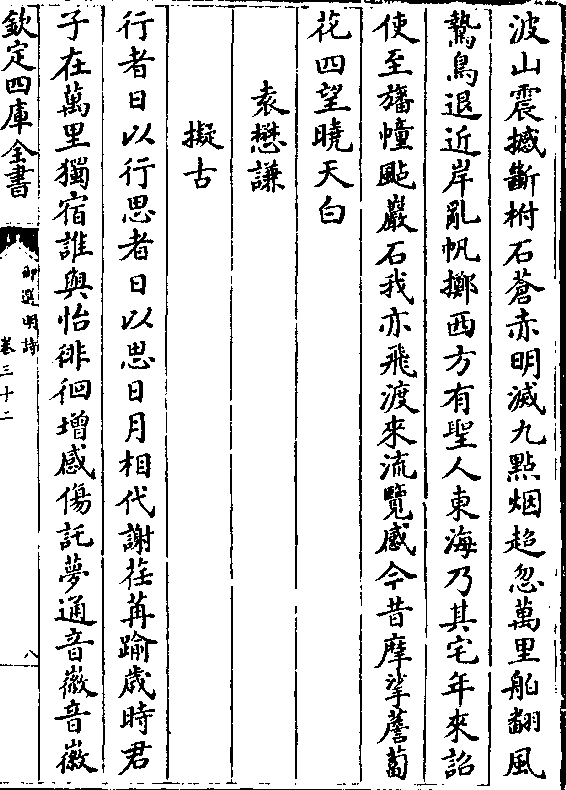 波山震撼斷柎石蒼赤明滅九點烟超忽萬里舶翻風
鷙鳥退近岸亂帆擲西方有聖人東海乃其宅年來詔
使至旛幢颭巖石我亦飛渡來流覽感今昔摩挲薝蔔
花四望曉天白
袁懋謙
擬古
行者日以行思者日以思日月相代謝荏苒踰歲時君
子在萬里獨宿誰與怡徘徊增感傷託夢通音徽音徽
欽定四庫全書
御選明詩
卷三十二
八